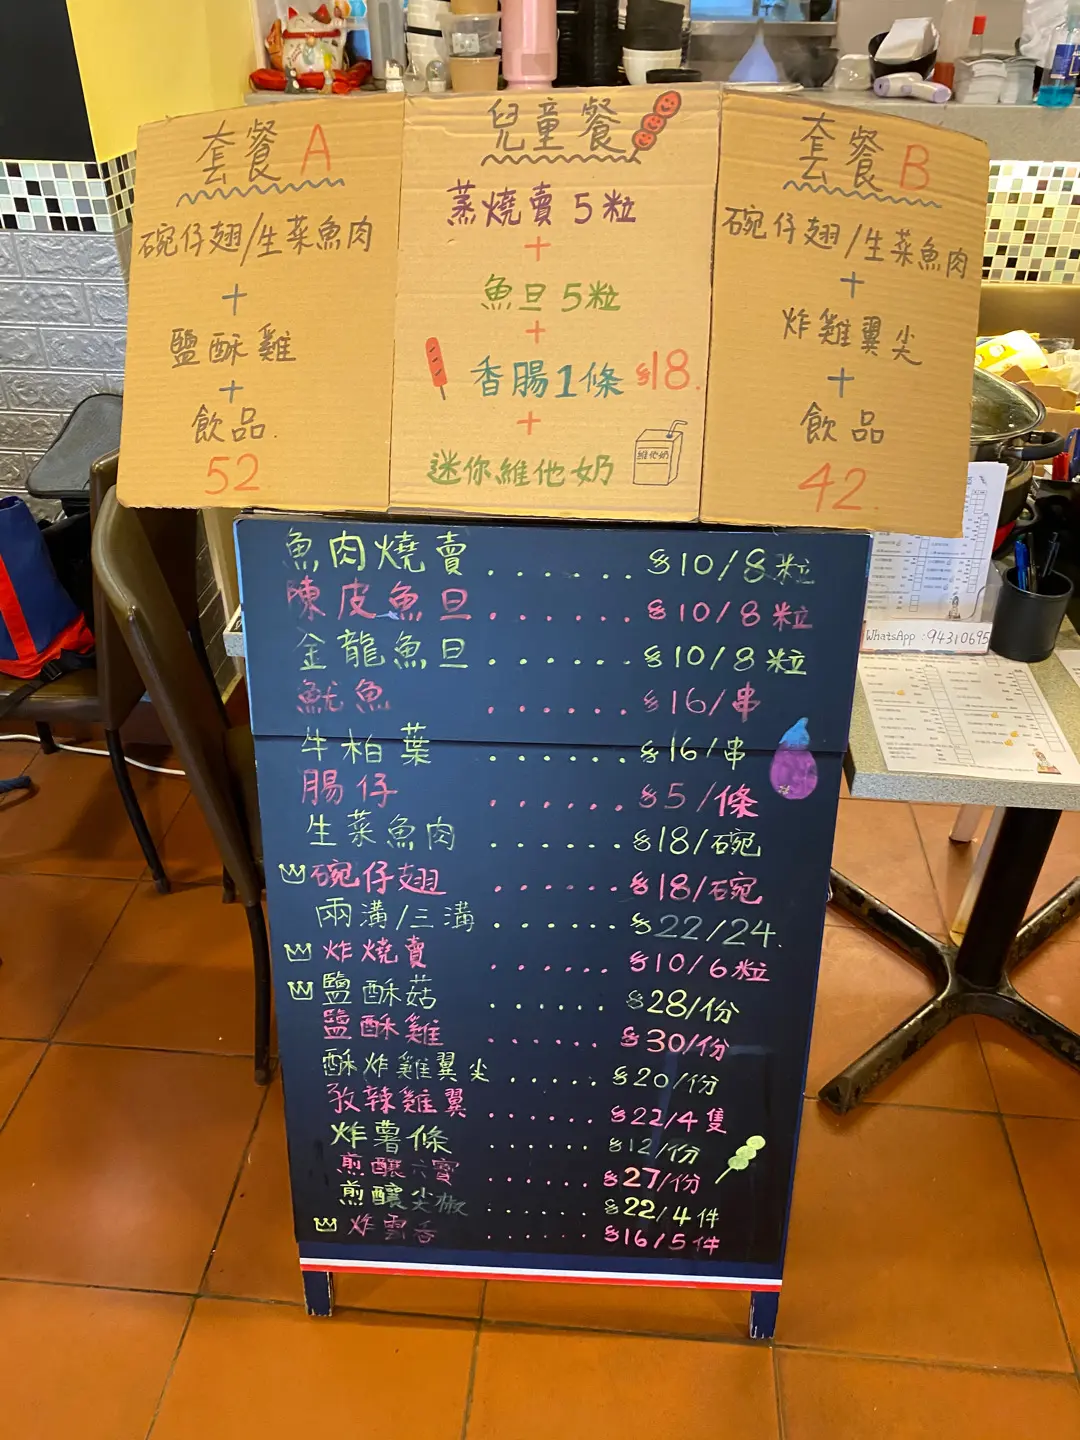 套餐 A
碗仔翅/生菜魚肉
+
鹽酥雞
+
飲品
52
兒童餐
蒸燒賣 5粒
+
魚旦 5粒
+
香腸1條 $18.
+
迷你維他奶
維他奶
套餐 B
碗仔翅/生菜魚肉
+
炸雞翼尖
+
飲品
42
魚肉燒賣 . . . . . . $10/8粒
陳皮魚旦 . . . . . . $10/8粒
金龍魚旦 . . . . . . $10/8粒
魷魚 . . . . . . $16/串
牛柏葉 . . . . . . $16/串
腸仔 . . . . . . $5/條
生菜魚肉 . . . . . . $18/碗
碗仔翅 . . . . . . $18/碗
兩溝/三溝 . . . . . . $22/24.
炸燒賣 . . . . . . $10/6粒
鹽酥菇 . . . . . . $28/份
鹽酥雞 . . . . . . $30/份
酥炸雞翼尖 . . . . . $20/份
孜辣雞翼 . . . . . . $22/4隻
炸薯條 . . . . . . $12/份
煎釀六寶 . . . . . . $27/份
煎釀尖椒 . . . . . . $22/4件
炸雲吞 . . . . . . $16/5件
WhatsApp : 94310695